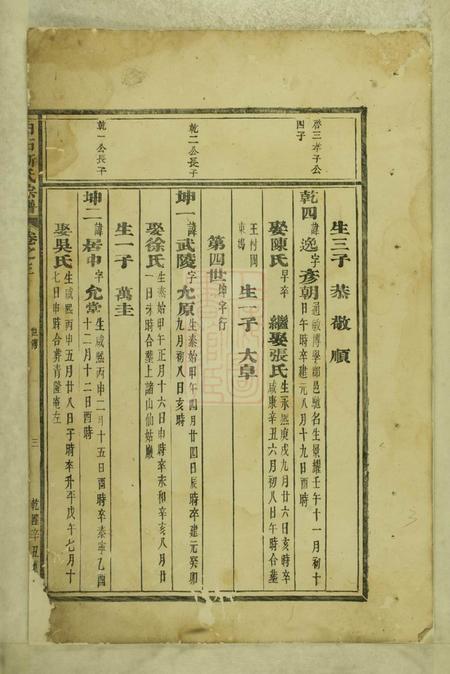 啓三孝子公
四子
乾二公長子
乾一公長子
生三子 恭敬順
乾四 諱逸字彥朝 通敏博學郡邑馳名生景耀壬午十一月初十
日午時卒建元八月十九日酉時
娶陳氏早卒 繼娶張氏 生永熙庚戌九月廿六日亥時卒
咸康辛丑六月初八日午時合塟
王村園
東塢 生一子 大皐
第四世 坤字行
坤一 諱武陵字允原 生泰始甲午四月廿四日辰時卒建元癸卯
九月初八日亥時
娶徐氏 生泰始甲午正月十六日申時卒永和辛亥八月廿
一日未時合塟上譜山仙姑廟
生一子 萬圭
坤二 諱居中字允堂 生咸熙丙申二月十五日酉時卒泰寧乙酉
十二月十二日酉時
娶吳氏 生咸熙丙申五月廿八日子時卒升平戊午七月十
七日申時合葬青隆庵左
氏宗譜
卷之三
世傳
三
乾隆辛丑